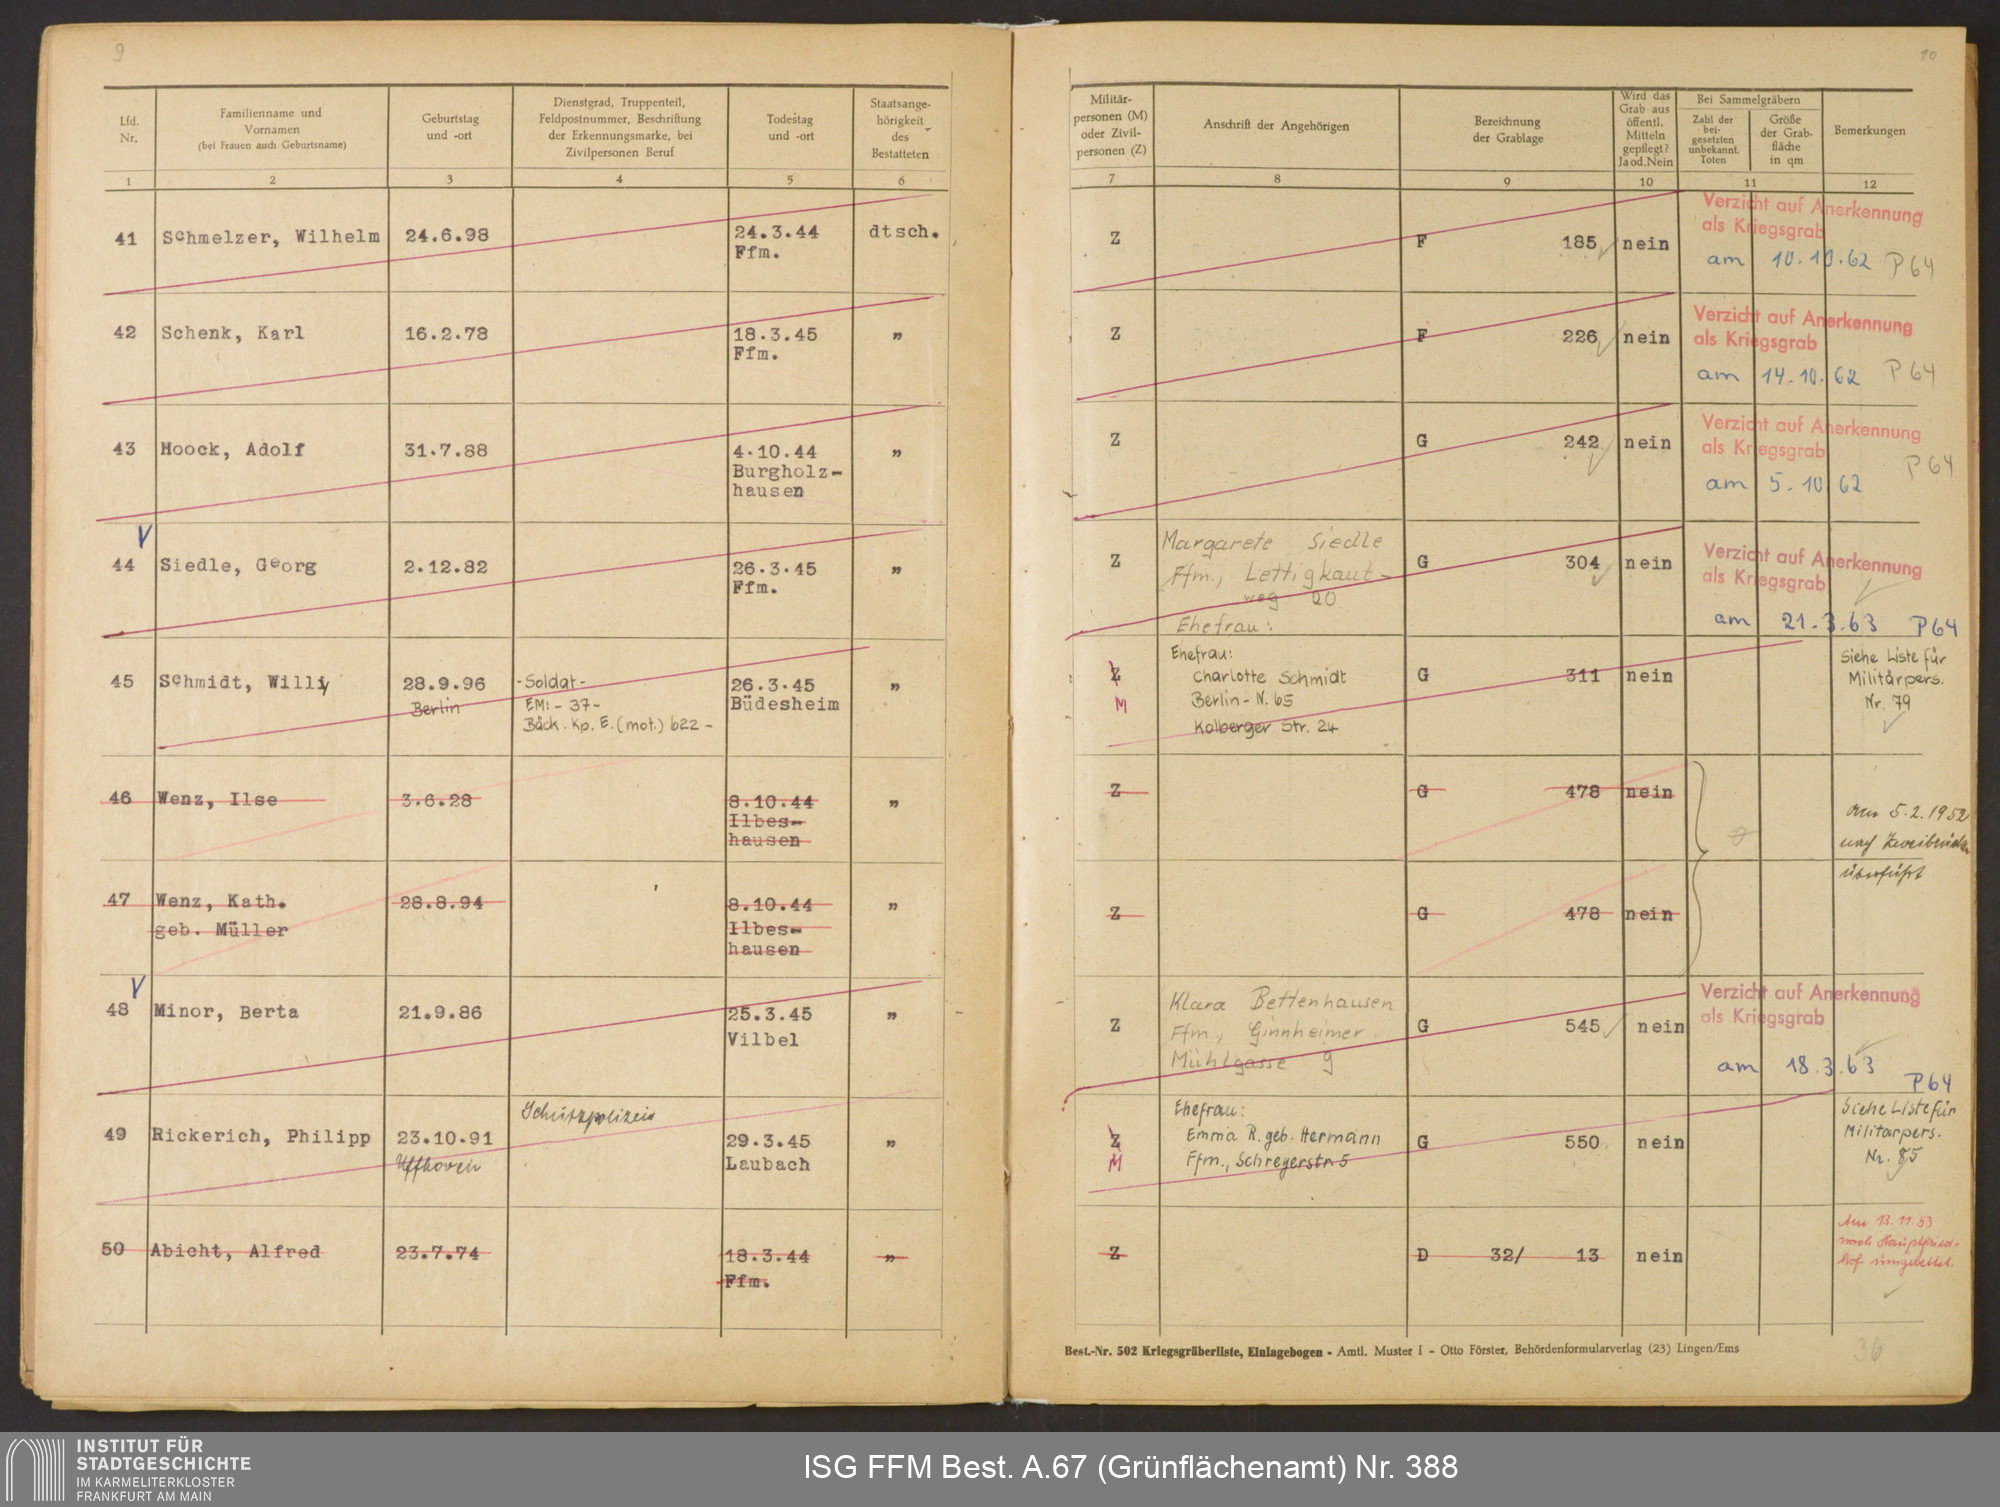 9
Lfd. Nr.
Familienname und Vornamen (bei Frauen auch Geburtsname)
Geburtstag und -ort
Dienstgrad, Truppenteil, Feldpostnummer, Beschriftung der Erkennungsmarke, bei Zivilpersonen Beruf
Todestag und -ort
Staatsange-hörigkeit des Bestatteten
1 2 3 4 5 6
41 Schmelzer, Wilhelm 24.6.98 24.3.44 dtsch.
Ffm.
42 Schenk, Karl 16.2.78 18.3.45 "
Ffm.
43 Hoock, Adolf 31.7.88 4.10.44 "
Burgholz-
hausen
V
44 Siedle, Georg 2.12.82 26.3.45 "
Ffm.
45 Schmidt, Willy 28.9.96 -Soldat- 26.3.45 "
Berlin EM:- 37- Büdesheim
Bäck. Kp. E. (mot.) 622 -
46 Wenz, Ilse 3.6.28 8.10.44 "
Ilbes-
hausen
47 Wenz, Kath. 28.8.94 8.10.44 "
geb. Müller Ilbes-
hausen
V
48 Minor, Berta 21.9.86 25.3.45 "
Vilbel
Schutzpolizei
49 Rickerich, Philipp 23.10.91 29.3.45 "
Uffhoven Laubach
50 Abicht, Alfred 23.7.74 18.3.44 "
Ffm.
10
Militär-personen (M) oder Zivil-personen (Z)
Anschrift der Angehörigen
Bezeichnung der Grablage
Wird das Grab aus öffentl. Mitteln gepflegt? Ja od. Nein
Bei Sammelgräbern
Zahl der bei-gesetzten unbekannt. Toten
Größe der Grab-fläche in qm
Bemerkungen
7 8 9 10 11 12
Verzicht auf Anerkennung
als Kriegsgrab
Z F 185 nein
am 10.10.62 P64
Verzicht auf Anerkennung
als Kriegsgrab
Z F 226 nein
am 14.10.62 P64
Verzicht auf Anerkennung
als Kriegsgrab
Z G 242 nein
am 5.10.62 P64
Margarete Siedle
Verzicht auf Anerkennung
als Kriegsgrab
Z Ffm., Lettigkaut- G 304 nein
weg 20
Ehefrau:
am 21.3.63 P64
Ehefrau: Siehe Liste für
Z Charlotte Schmidt G 311 nein Militärpers.
M Berlin - N. 65 Nr. 79
Kolberger Str. 24
Z G 478 nein
am 5.2.1952
nach Zweibrücken
überführt
Z G 478 nein
Klara Bettenhausen
Verzicht auf Anerkennung
als Kriegsgrab
Z Ffm., Ginnheimer G 545 nein
Mühlgasse 9
am 18.3.63
P64
Ehefrau: Siehe Liste für
Z Emma R. geb. Hermann G 550 nein Militärpers.
M Ffm., Schreyerstr. 5 Nr. 85
Am 13.11.53
nach Hauptfried-
hof umgebettet.
Z D 32/ 13 nein
Best.-Nr. 502 Kriegsgräberliste, Einlagebogen - Amtl. Muster I - Otto Förster, Behördenformularverlag (23) Lingen/Ems
36
INSTITUT FÜR
STADTGESCHICHTE
IM KARMELITERKLOSTER
FRANKFURT AM MAIN
ISG FFM Best. A.67 (Grünflächenamt) Nr. 388